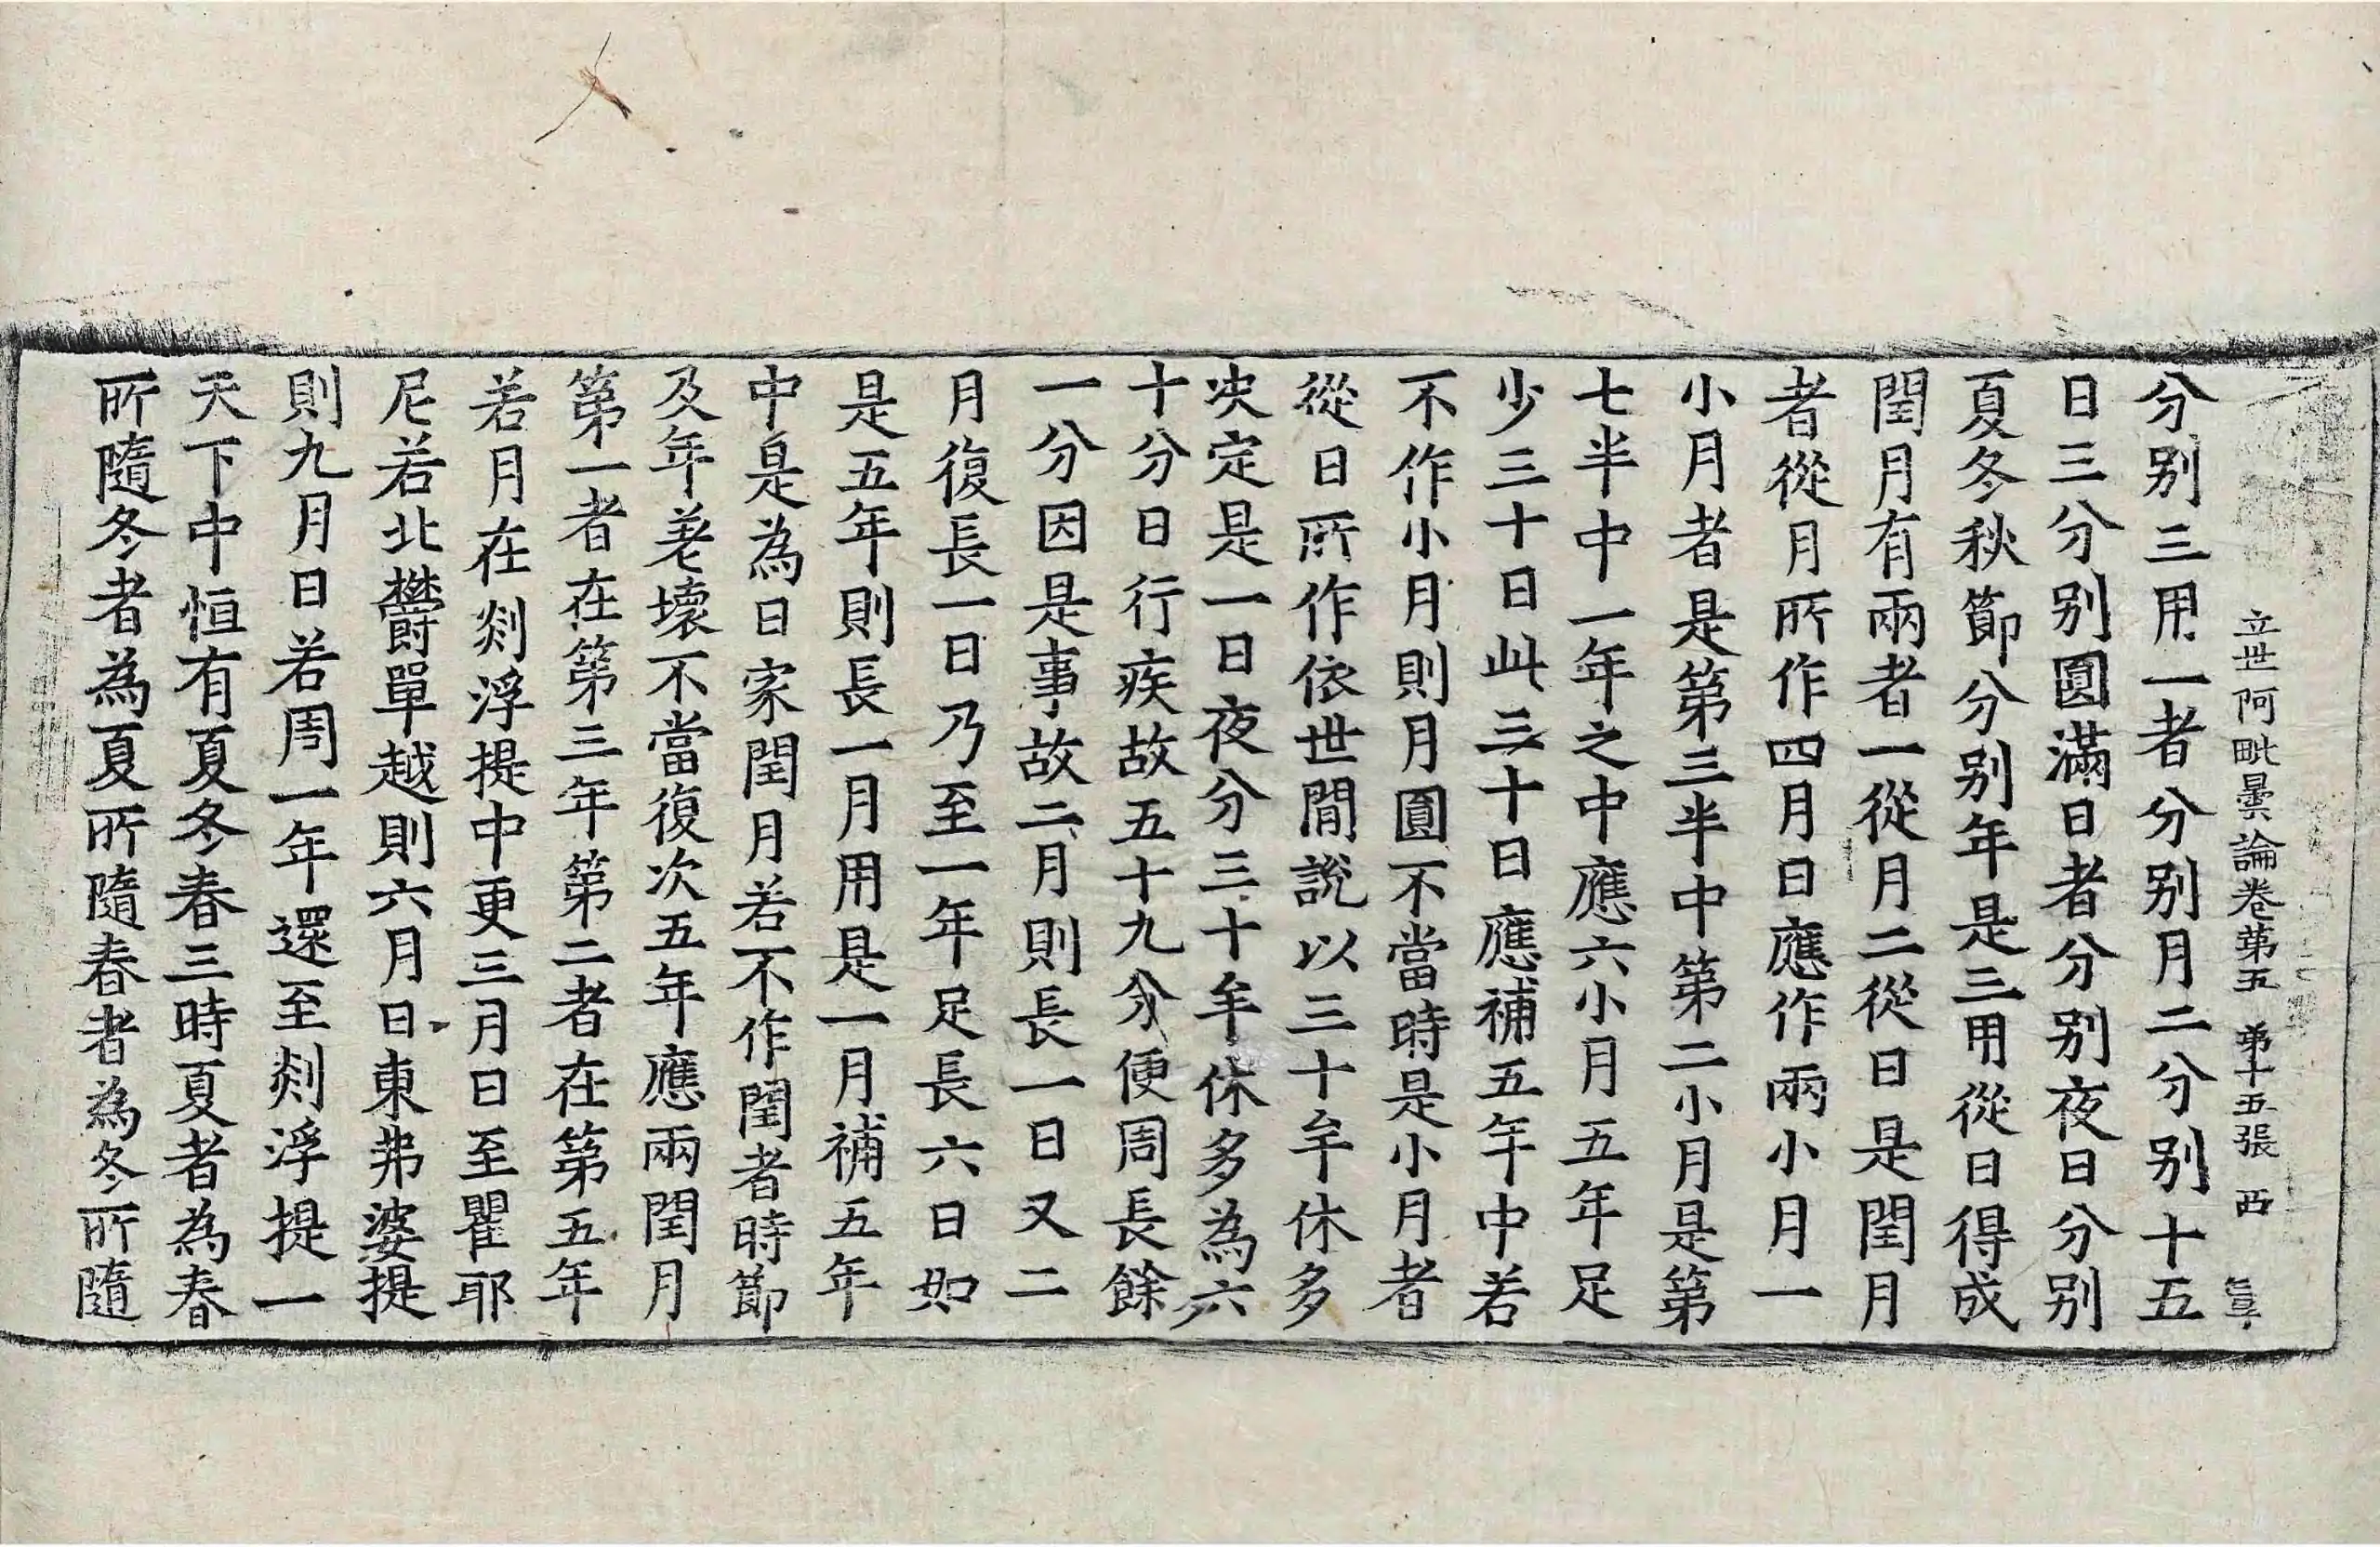 立世阿毗曇論卷第五 第十五張 西
分別三用一者分別月二分別十五
日三分別圓滿日者分別夜日分別
夏冬秋節分別年是三用從日得成
閏月有兩者一從月二從日是閏月
者從月所作四月日應作兩小月一
小月者是第三半中第二小月是第
七半中一年之中應六小月五年足
少三十日此三十日應補五年中若
不作小月則月圓不當時是小月者
從日所作依世間說以三十牟休多
決定是一日夜分三十牟休多為六
十分日行疾故五十九分便周長餘
一分因是事故二月則長一日又二
月復長一日乃至一年足長六日如
是五年則長一月用是一月補五年
中是為日家閏月若不作閏者時節
及年老壞不當復次五年應兩閏月
第一者在第三年第二者在第五年
若月在剡浮提中更三月日至瞿耶
尼若北欝單越則六月日東弗婆提
則九月日若周一年還至剡浮提一
天下中恒有夏冬春三時夏者為春
所隨冬者為夏所隨春者為冬所隨